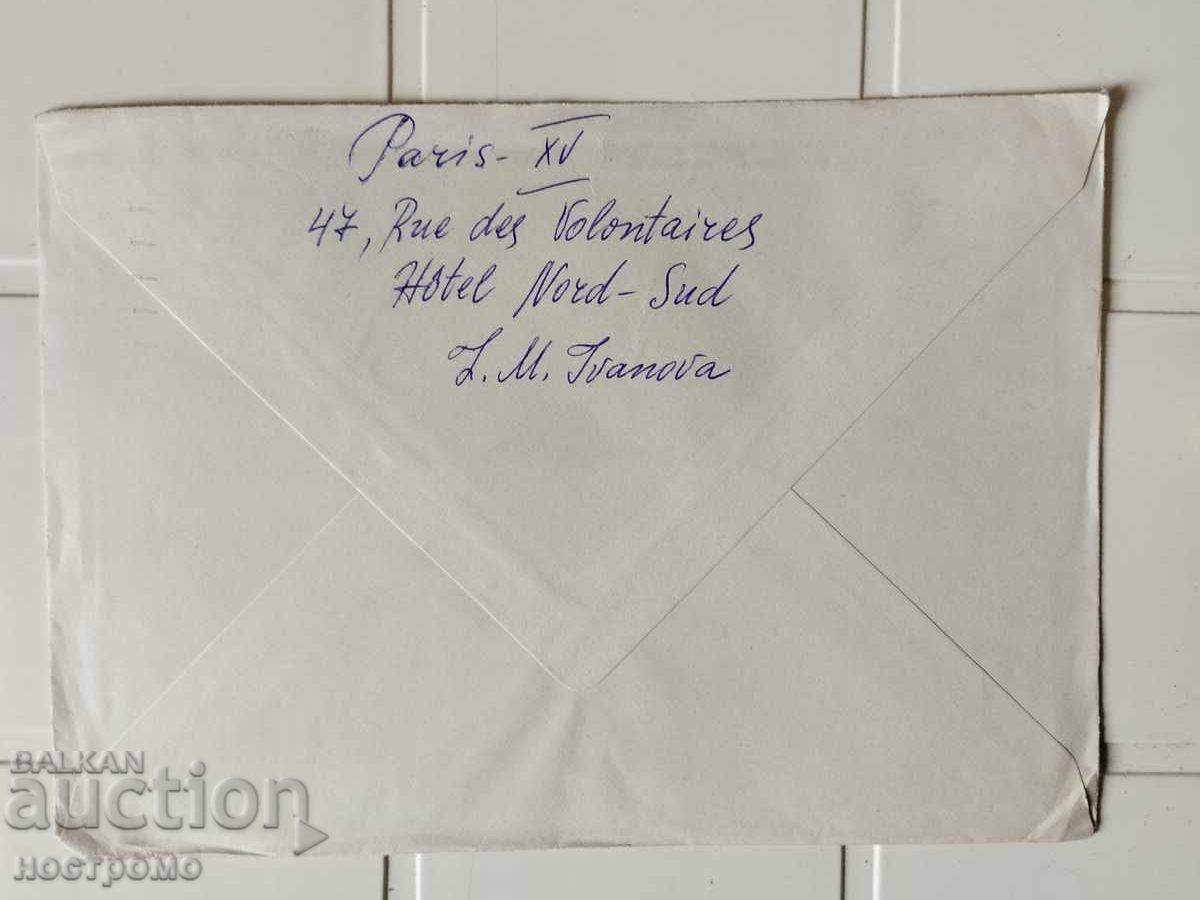 Paris - XV
47, Rue des Volontaires
Hôtel Nord-Sud
L. M. Ivanova
BALKAN
auction
НОСТРОМО